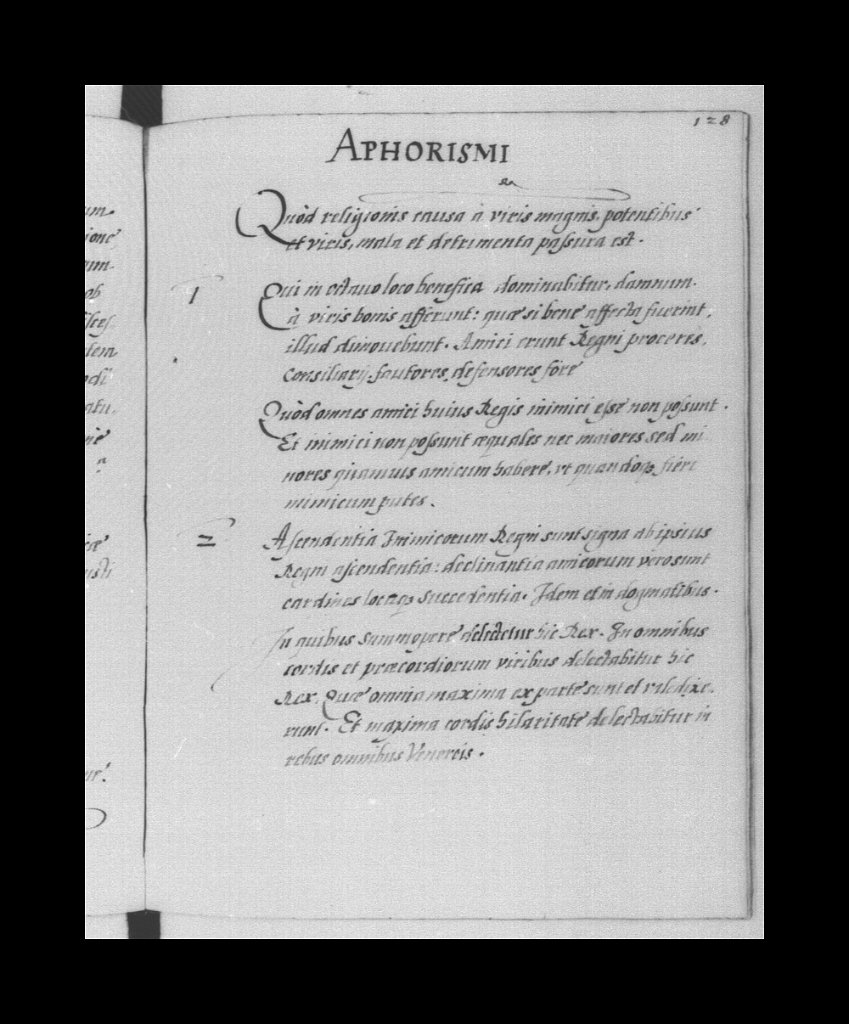 128
APHORISMI
Quòd religionis causa à viris magnis, potentibus
et viris, mala et detrimenta passura est.
1
Qui in octauo loco benefica dominabitur, damnum
à viris bonis afferunt: quæ si bene affecta fuerint,
illud dimouebunt. Amici erunt Regni proceres,
Consiliarij, fautores, defensores fore
Quòd omnes amici huius Regis inimici esse non possunt.
Et inimici non possunt æquales nec maiores sed mi
nores quamuis amicum habere, vt quandoq3 fieri
inimicum putes.
2
Ascendentia Inimicorum Regni sunt signa ab ipsius
Regni ascendentia: declinantia amicorum verò sunt
cardines locaq3 succedentia. Idem et in dogmatibus.
In quibus summopere delectetur hic Rex. In omnibus
cordis et præcordiorum viribus delectabitur hic
Rex. Quæ omnia maxima ex parte sunt el
runt. Et maxima cordis hilaritate delectabitur in
rebus omnibus Venereis.